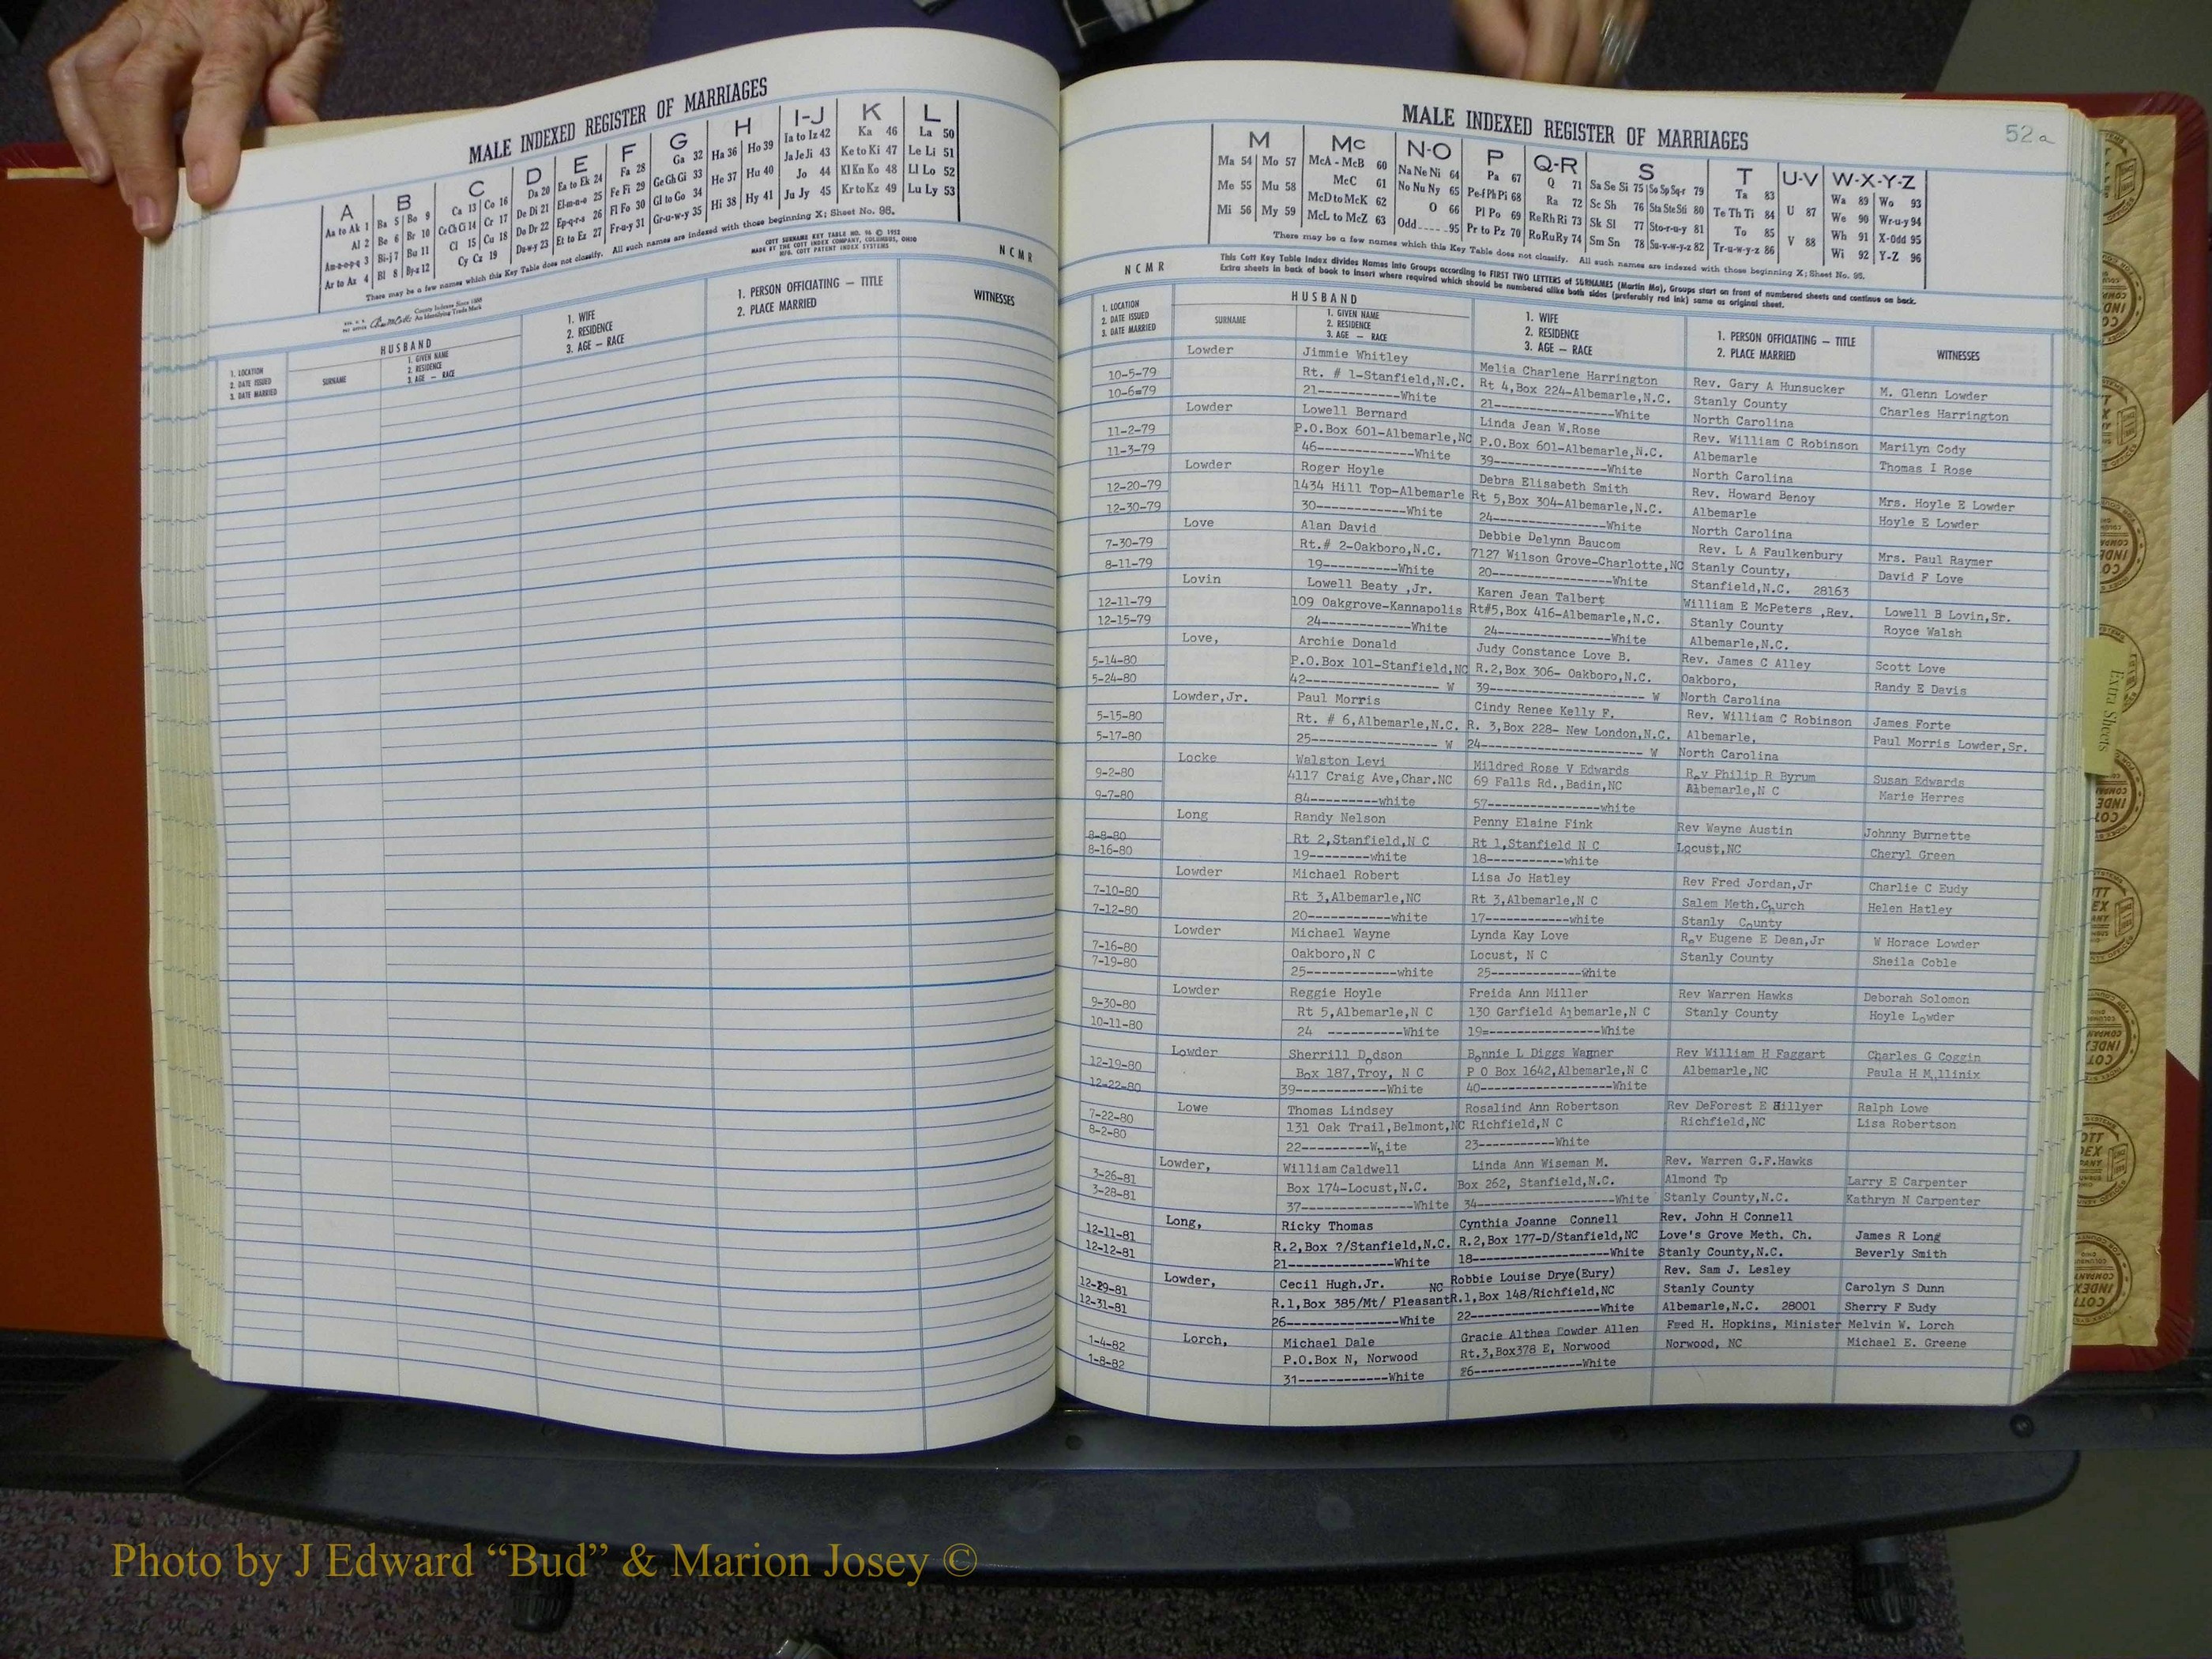 MALE INDEXED REGISTER OF MARRIAGES
A B C D E F G H I-J K L
Aa to Ak 1 Ba 5 Bo 9 Ca 13 Co 16 Da 20 Ea to Ek 24 Fa 28 Ga 32 Ha 36 Ho 39 Ia to Iz 42 Ka 46 La 50
Al 2 Be 6 Br 10 Ce Ch Ci 14 Cr 17 De Di 21 El-m-n-o 25 Fe Fi 29 Ge Gh Gi 33 He 37 Hu 40 Ja Je Ji 43 Ke to Ki 47 Le Li 51
Am-n-o-p-q 3 Bi-j 7 Bu 11 Cl 15 Cu 18 Do Dr 22 Ep-q-r-s 26 Fl Fo 30 Gl to Go 34 Hi 38 Hy 41 Jo 44 Kl Kn Ko 48 Ll Lo 52
Ar to Az 4 Bl 8 By-z 12 Cy Cz 19 Du-w-y 23 Et to Ez 27 Fr-u-y 31 Gr-u-w-y 35 Ju Jy 45 Kr to Kz 49 Lu Ly 53
There may be a few names which this Key Table does not classify. All such names are indexed with those beginning X; Sheet No. 95.
COTT SURNAME KEY TABLE NO. 96 © 1952
MADE BY THE COTT INDEX COMPANY, COLUMBUS, OHIO
MFG. COTT PATENT INDEX SYSTEMS
County Indexes Since 1888
An Identifying Trade Mark
N C M R
1. LOCATION
2. DATE ISSUED
3. DATE MARRIED
HUSBAND
SURNAME
1. GIVEN NAME
2. RESIDENCE
3. AGE — RACE
1. WIFE
2. RESIDENCE
3. AGE — RACE
1. PERSON OFFICIATING — TITLE
2. PLACE MARRIED
WITNESSES
52a
MALE INDEXED REGISTER OF MARRIAGES
M Mc N-O P Q-R S T U-V W-X-Y-Z
Ma 54 Mo 57 McA - McB 60 Na Ne Ni 64 Pa 67 Q 71 Sa Se Si 75 So Sp Sq-r 79 Ta 83 U 87 Wa 89 Wo 93
Me 55 Mu 58 McC 61 No Nu Ny 65 Pe-f Ph Pi 68 Ra 72 Sc Sh 76 Sta Ste Sti 80 Te Th Ti 84 V 88 We 90 Wr-u-y 94
Mi 56 My 59 McD to McK 62 O 66 Pl Po 69 Re Rh Ri 73 Sk Sl 77 Sto-r-u-y 81 To 85 Wh 91 X-Odd 95
McL to McZ 63 Odd 95 Pr to Pz 70 Ro Ru Ry 74 Sm Sn 78 Su-v-w-y-z 82 Tr-u-w-y-z 86 Wi 92 Y-Z 96
There may be a few names which this Key Table does not classify. All such names are indexed with those beginning X; Sheet No. 95.
This Cott Key Table Index divides Names into Groups according to FIRST TWO LETTERS of SURNAMES (Martin Ma), Groups start on front of numbered sheets and continue on back.
Extra sheets in back of book to insert where required which should be numbered alike both sides (preferably red ink) same as original sheet.
N C M R
1. LOCATION
2. DATE ISSUED
3. DATE MARRIED
HUSBAND
SURNAME
1. GIVEN NAME
2. RESIDENCE
3. AGE — RACE
1. WIFE
2. RESIDENCE
3. AGE — RACE
1. PERSON OFFICIATING — TITLE
2. PLACE MARRIED
WITNESSES
Lowder Jimmie Whitley Melia Charlene Harrington Rev. Gary A Hunsucker M. Glenn Lowder
10-5-79 Rt. # 1-Stanfield,N.C. Rt 4,Box 224-Albemarle,N.C. Stanly County Charles Harrington
10-6=79 21-----------White 21----------------White North Carolina
Lowder Lowell Bernard Linda Jean W.Rose Rev. William C Robinson Marilyn Cody
11-2-79 P.O.Box 601-Albemarle,NC P.O.Box 601-Albemarle,N.C. Albemarle Thomas I Rose
11-3-79 46-------------White 39---------------White North Carolina
Lowder Roger Hoyle Debra Elisabeth Smith Rev. Howard Benoy Mrs. Hoyle E Lowder
12-20-79 1434 Hill Top-Albemarle Rt 5,Box 304-Albemarle,N.C. Albemarle Hoyle E Lowder
12-30-79 30------------White 24---------------White North Carolina
Love Alan David Debbie Delynn Baucom Rev. L A Faulkenbury Mrs. Paul Raymer
7-30-79 Rt.# 2-Oakboro,N.C. 7127 Wilson Grove-Charlotte,NC Stanly County, David F Love
8-11-79 19-----------White 20----------------White Stanfield,N.C. 28163
Lovin Lowell Beaty ,Jr. Karen Jean Talbert William E McPeters ,Rev. Lowell B Lovin,Sr.
12-11-79 109 Oakgrove-Kannapolis Rt#5,Box 416-Albemarle,N.C. Stanly County Royce Walsh
12-15-79 24------------White 24---------------White Albemarle,N.C.
Love, Archie Donald Judy Constance Love B. Rev. James C Alley Scott Love
5-14-80 P.O.Box 101-Stanfield,NC R.2,Box 306- Oakboro,N.C. Oakboro, Randy E Davis
5-24-80 42------------------ W 39--------------------- W North Carolina
Lowder,Jr. Paul Morris Cindy Renee Kelly F. Rev. William C Robinson James Forte
5-15-80 Rt. # 6,Albemarle,N.C. R. 3,Box 228- New London,N.C. Albemarle, Paul Morris Lowder,Sr.
5-17-80 25----------------- W 24---------------------- W North Carolina
Locke Walston Levi Mildred Rose V Edwards Rev Philip R Byrum Susan Edwards
9-2-80 4117 Craig Ave,Char.NC 69 Falls Rd.,Badin,NC Albemarle,N C Marie Herres
9-7-80 84---------white 57---------------white
Long Randy Nelson Penny Elaine Fink Rev Wayne Austin Johnny Burnette
8-8-80 Rt 2,Stanfield,N C Rt 1,Stanfield N C Locust,NC Cheryl Green
8-16-80 19--------white 18-----------white
Lowder Michael Robert Lisa Jo Hatley Rev Fred Jordan,Jr Charlie C Eudy
7-10-80 Rt 3,Albemarle,NC Rt 3,Albemarle,N C Salem Meth.Church Helen Hatley
7-12-80 20-----------white 17------------white Stanly County
Lowder Michael Wayne Lynda Kay Love Rev Eugene E Dean,Jr W Horace Lowder
7-16-80 Oakboro,N C Locust, N C Stanly County Sheila Coble
7-19-80 25------------white 25------------White
Lowder Reggie Hoyle Freida Ann Miller Rev Warren Hawks Deborah Solomon
9-30-80 Rt 5,Albemarle,N C 130 Garfield Albemarle,N C Stanly County Hoyle Lowder
10-11-80 24 ----------White 19=---------------White
Lowder Sherrill Dodson Bonnie L Diggs Wagner Rev William H Faggart Charles G Coggin
12-19-80 Box 187,Troy, N C P O Box 1642,Albemarle,N C Albemarle,NC Paula H Mullinix
12-22-80 39------------White 40------------------White
Lowe Thomas Lindsey Rosalind Ann Robertson Rev DeForest E Hillyer Ralph Lowe
7-22-80 131 Oak Trail,Belmont,NC Richfield,N C Richfield,NC Lisa Robertson
8-2-80 22----------White 23-----------White
Lowder, William Caldwell Linda Ann Wiseman M. Rev. Warren G.F.Hawks
3-26-81 Box 174-Locust,N.C. Box 262, Stanfield,N.C. Almond Tp Larry E Carpenter
3-28-81 37----------------White 34-------------------White Stanly County,N.C. Kathryn N Carpenter
Long, Ricky Thomas Cynthia Joanne Connell Rev. John H Connell
12-11-81 R.2,Box ?/Stanfield,N.C. R.2,Box 177-D/Stanfield,NC Love's Grove Meth. Ch. James R Long
12-12-81 21--------------White 18------------------White Stanly County,N.C. Beverly Smith
Lowder, Cecil Hugh.Jr. NC Robbie Louise Drye(Eury) Rev. Sam J. Lesley
12-29-81 R.1,Box 385/Mt/ Pleasant R.1,Box 148/Richfield,NC Stanly County Carolyn S Dunn
12-31-81 26---------------White 22-------------------White Albemarle,N.C. 28001 Sherry F Eudy
Lorch, Michael Dale Gracie Althea Lowder Allen Fred H. Hopkins, Minister Melvin W. Lorch
1-4-82 P.O.Box N, Norwood Rt.3,Box378 E, Norwood Norwood, NC Michael E. Greene
1-8-82 31------------White 26---------------White
Extra Sheets
Photo by J Edward “Bud” & Marion Josey ©